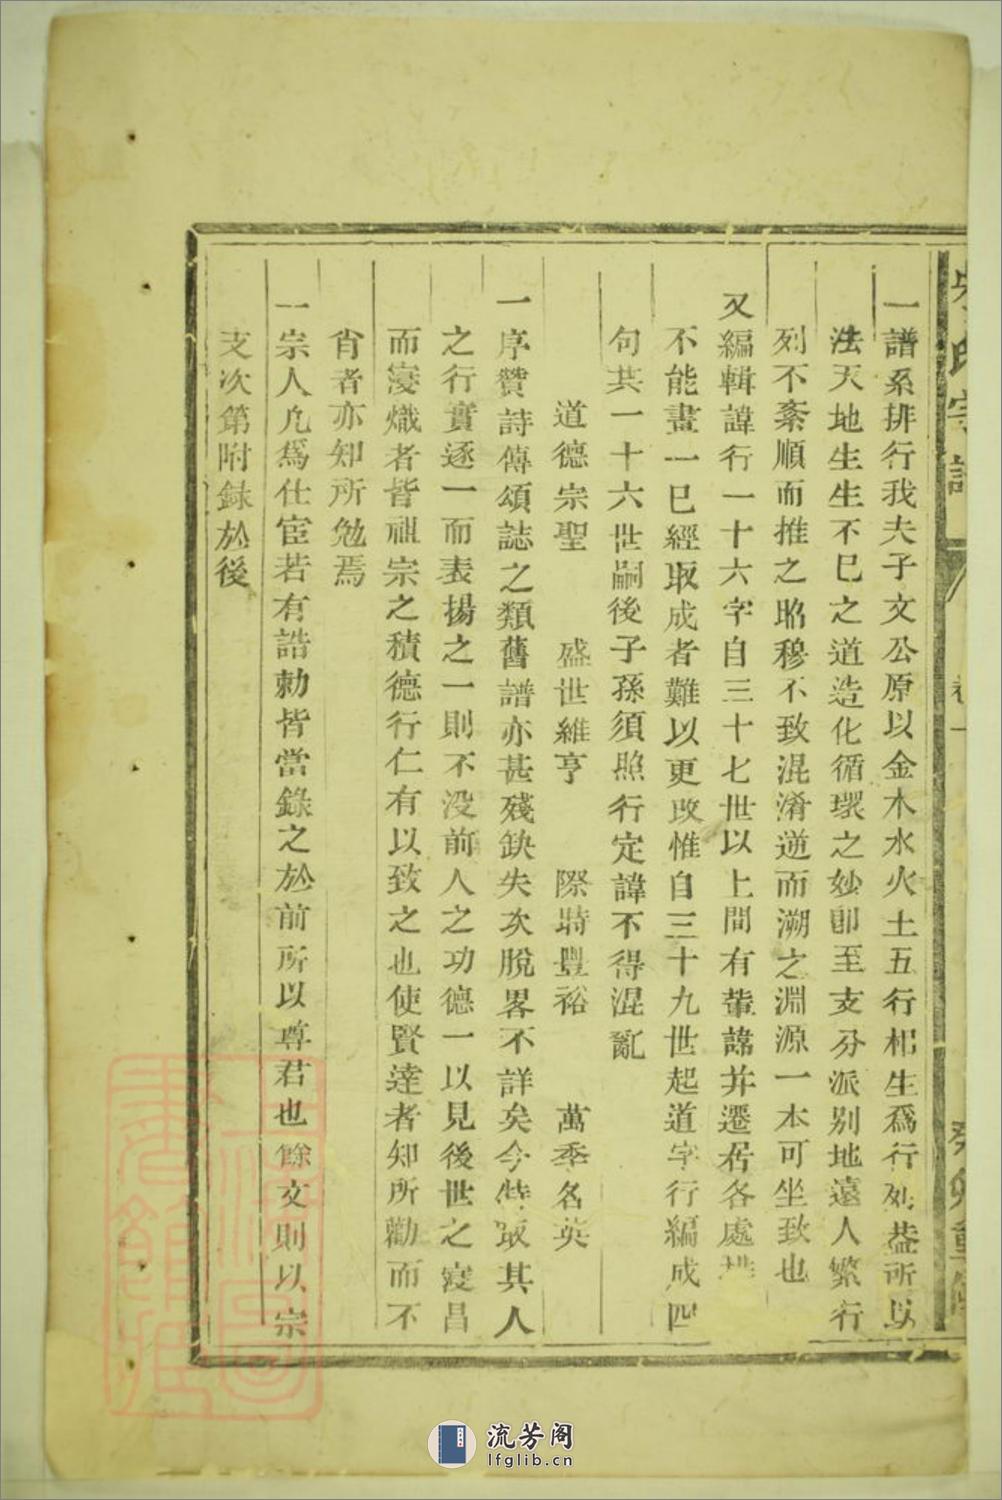 氏宗譜
卷一
一譜系排行我夫子文公原以金木水火土五行相生爲行列葢所以
法天地生生不巳之道造化循環之妙卽至支分派别地遠人繁行
列不紊順而推之昭穆不致混淆逆而溯之淵源一本可坐致也
又編輯諱行一十六字自三十七世以上間有輩諱并遷居各處
不能畫一巳經取成者難以更改惟自三十九世起道字行編成四
句共一十六世嗣後子孫須照行定諱不得混亂
道德宗聖　盛世維亨　際時豐裕　萬季名英
一序贊詩傳頌誌之類舊譜亦甚殘缺失次脫畧不詳矣今特取其人
之行實逐一而表揚之一則不没前人之功德一以見後世之寖昌
而寖熾者皆祖宗之積德行仁有以致之也使賢達者知所勸而不
肯者亦知所勉焉
一宗人凡爲仕宦若有誥勅皆當錄之於前所以尊君也餘文則以宗
支次第附錄於後
流芳阁
lfglib.cn